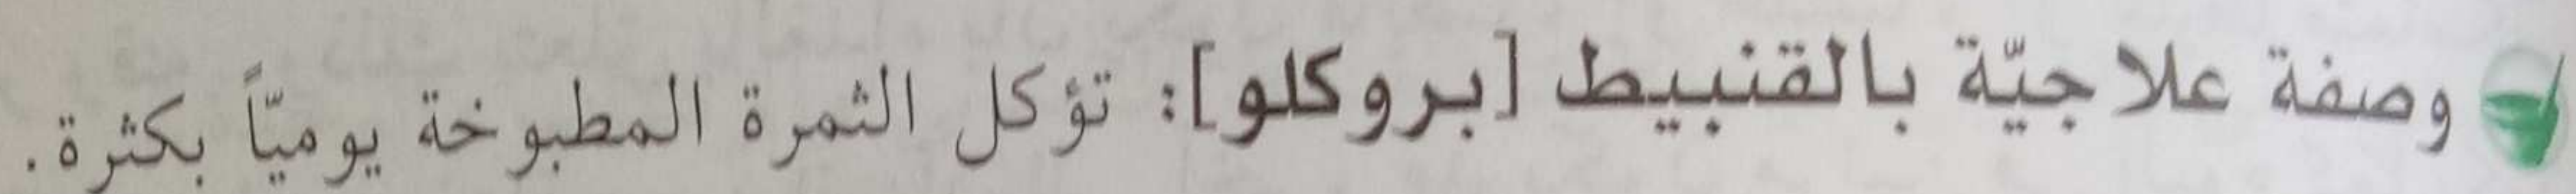 وصفة علاجيّة بالقنبيط [بروكلو]: تؤكل الثمرة المطبوخة يوميّاً بكثرة.